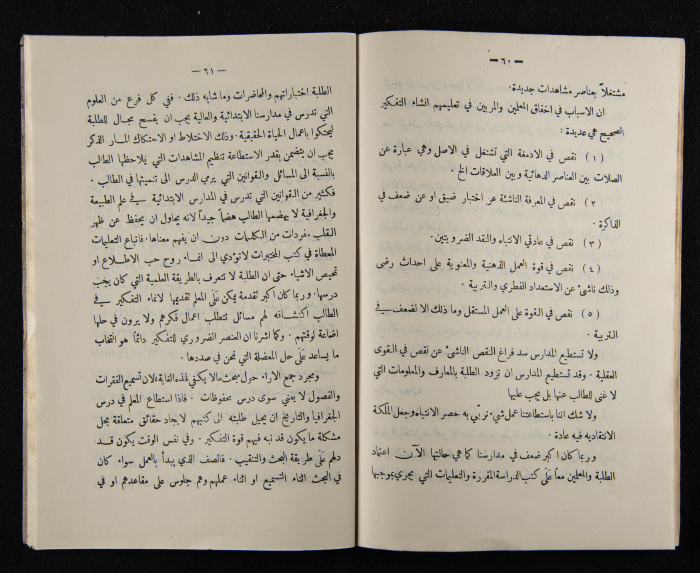 — ٦٠ —
مشتغلاً بعناصر مشاهدات جديدة.
ان الاسباب في اخفاق المعلمين والمربين في تعليمهم انشاء التفكير
الصحيح هي عديدة :
( ١ ) نقص في الادمغة التي تشتغل في الاصل وهي عبارة عن
الصلات بين العناصر الدهائية وبين العلاقات الخ .
( ٢ ) نقص في المعرفة الناشئة عن اختبار ضيق او عن ضعف في
الذاكرة .
( ٣ ) نقص في عادتي الانتباه والنقد الضروريتين .
( ٤ ) نقص في قوة العمل الذهنية والمعنوية على احداث رضى
وذلك ناشئ عن الاستعداد الفطري والتربية .
( ٥ ) نقص في القوة على العمل المستقل وما ذلك الا لضعف في
التربية .
ولا تستطيع المدارس سد فراغ النقص الناشئ عن نقص في القوى
العقلية . وقد تستطيع المدارس ان تزود الطلبة بالمعارف والمعلومات التي
لا غنى للطالب عنها بل يجب عليها
ولا شك اننا باستطاعتنا عمل شيء نربّي به حصر الانتباه وجعل الملكة
الانتقاديه فيه عادة .
وربما كان اكبر ضعف في مدارسنا كما هي حالتها الآن اعتماد
الطلبة والمعلمين معاً على كتب الدراسة المقررة والتعليمات التي يجري بموجبها
— ٦١ —
الطلبة اختباراتهم والمحاضرات وما شابه ذلك . ففي كل فرع من العلوم
التي تدرس في مدارسنا الابتدائية والعالية يجب ان يفسح مجال للطلبة
ليحتكوا باعمال الحياة الحقيقية . وذلك الاختلاط او الاحتكاك المار الذكر
يجب ان يتضمن بقدر الاستطاعة تنظيم المشاهدات التي يلاحظها الطالب
بالنسبة الى المسائل والقوانين التي يرمي الدرس الى تنميتها في الطالب .
فكثير من القوانين التي تدرس في المدارس الابتدائية في علم الطبيعة
والجغرافية لا يهضمها الطالب هضماً جيداً لانه يحاول ان يحفظ عن ظهر
القلب مفردات من الكلمات دون ان يفهم معناها . فاتباع التعليمات
المعطاة في كتب المختبرات لا تؤدي الى انماء روح حب الاطلاع او
تمحيص الاشياء حتى ان الطلبة لا تتعرف بالطريقة العلمية التي كان يجب
درسها . وربما كان اكبر تقدمة يمكن على المعلم تقديمها لانماء التفكير في
الطالب اكتشافه لهم مسائل تتطلب اعمال فكرهم ولا يرون في حلها
اضاعة لوقتهم . وكما اشرنا ان العنصر الضروري للتفكير دائماً هو انتخاب
ما يساعد على حل المعضلة التي نحن في صددها .
ومجرد جمع الآراء حول مبحث ما لا يكفي لهذه الغاية لان تسميع الفقرات
والفصول لا يعني سوى درس محفوظات . فاذا استطاع المعلم في درس
الجغرافيا والتاريخ ان يحيل طلبته الى كتبهم لايجاد حقائق متعلقة بحل
مشكلة ما يكون قد نبه فيهم قوة التفكير . وفي نفس الوقت يكون قد
دلهم على طريقة البحث والتنقيب . فالصف الذي يبدأ بالعمل سواء كان
في البحث اثناء التسميع او اثناء عملهم وهم جلوس على مقاعدهم او في